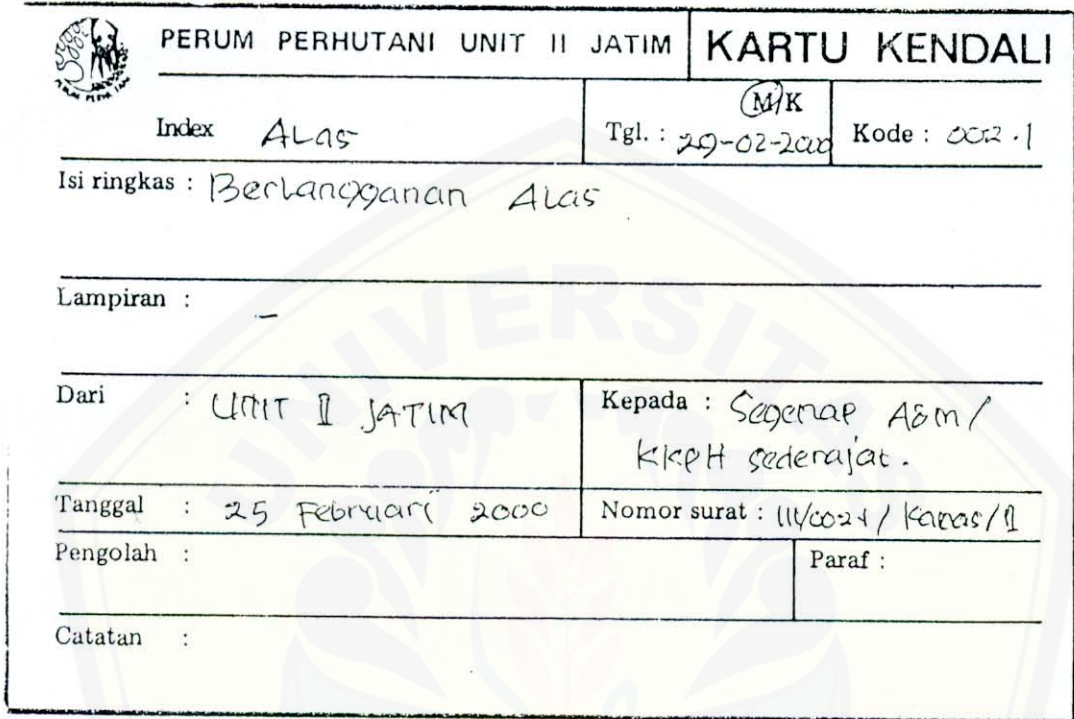 PERUM PERHUTANI UNIT II JATIM
KARTU KENDALI
M/K
Index ALas
Tgl. : 29-02-2000
Kode : 002.1
Isi ringkas : Berlangganan ALas
Lampiran : -
Dari : UNIT II JATIM
Kepada : Segenap A&m/
KKPH sederajat.
Tanggal : 25 Februari 2000
Nomor surat :
Pengolah :
Paraf :
Catatan :
UNIVERSITAS